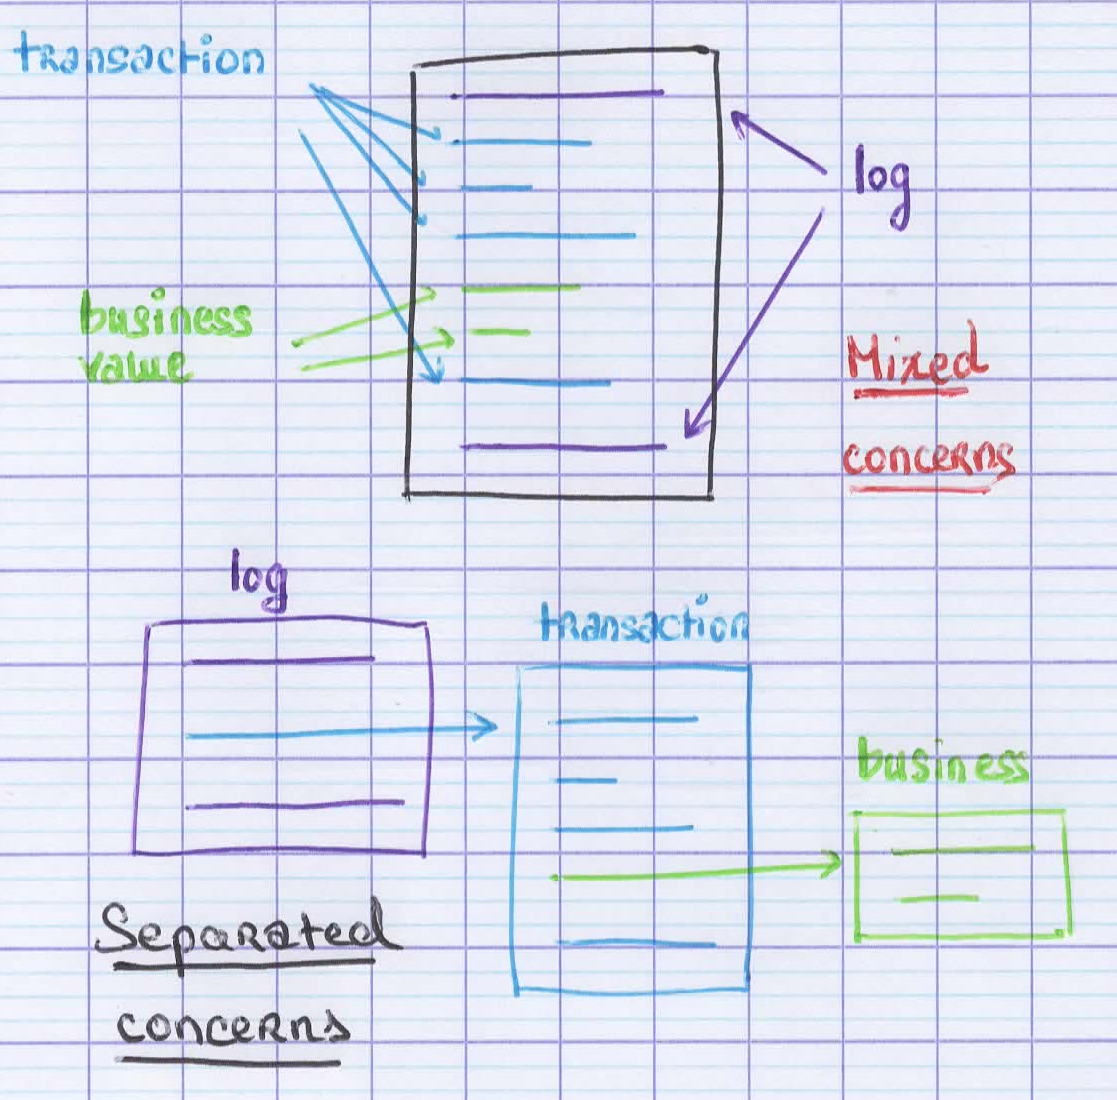 transaction
log
business
value
Mixed
concerns
log
transaction
business
Separated
concerns